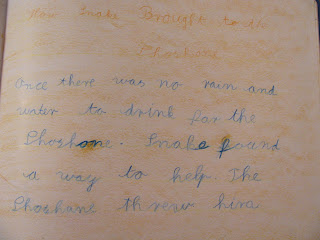 How Snake Brought to the
Shoshone
Once there was no rain and
water to drink for the
Shoshone. Snake found
a way to help. The
Shoshone threw him